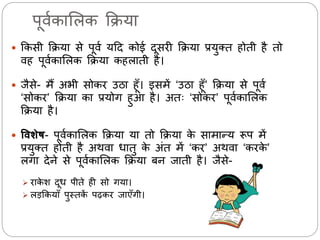 पूर्वकालिक क्रिया
• किसी क्रिया से पूर्व यदि कोई दूसरी क्रिया प्रयुक्त होती है तो
वह पूर्वकालिक क्रिया कहलाती है।
• जैसे- मैं अभी सोकर उठा हूँ। इसमें ‘उठा हूँ’ क्रिया से पूर्व
‘सोकर’ क्रिया का प्रयोग हुआ है। अतः ‘सोकर’ पूर्वकालिक
क्रिया है।
• विशेष- पूर्वकालिक क्रिया या तो क्रिया के सामान्य रूप में
प्रयुक्त होती है अथवा धातु के अंत में ‘कर’ अथवा ‘करके’
लगा देने से पूर्वकालिक क्रिया बन जाती है। जैसे-
➢ राकेश दूध पीते ही सो गया।
➢ लड़कियाँ पुस्तकें पढ़कर जाएँगी।